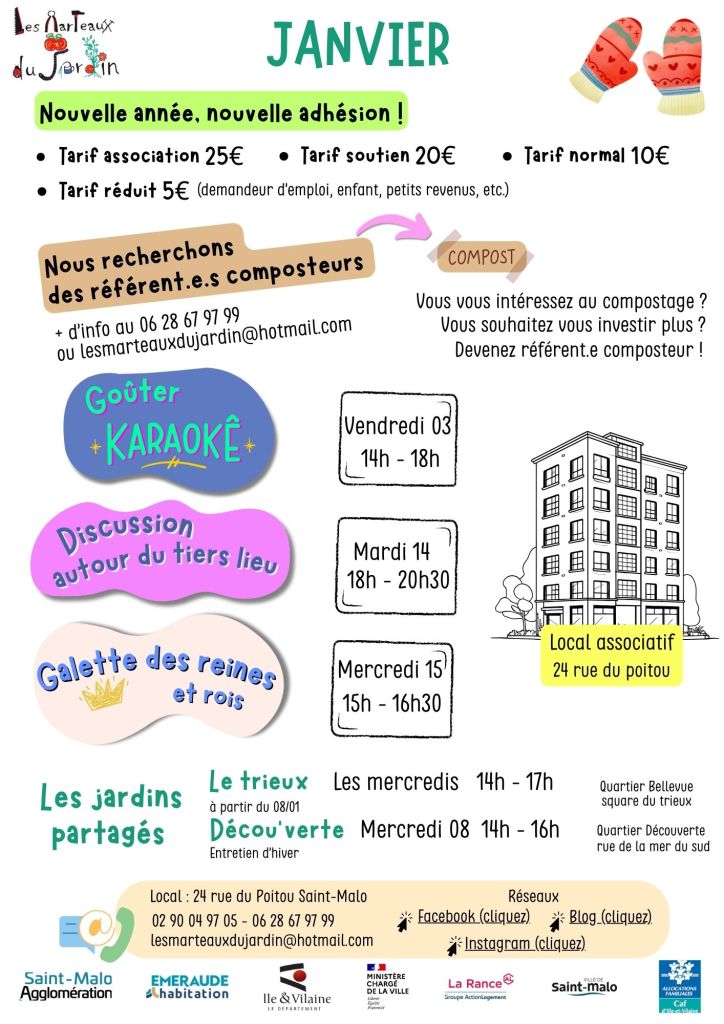 Les MarTeaux
du Jardin
JANVIER
Nouvelle année, nouvelle adhésion !
• Tarif association 25€ • Tarif soutien 20€ • Tarif normal 10€
• Tarif réduit 5€ (demandeur d'emploi, enfant, petits revenus, etc.)
Nous recherchons
des référent.e.s composteurs
+ d'info au 06 28 67 97 99
ou lesmarteauxdujardin@hotmail.com
COMPOST
Vous vous intéressez au compostage ?
Vous souhaitez vous investir plus ?
Devenez référent.e composteur !
Goûter
KARAOKÊ
Vendredi 03
14h - 18h
Discussion
autour du tiers lieu
Mardi 14
18h - 20h30
Galette des reines
et rois
Mercredi 15
15h - 16h30
Local associatif
24 rue du poitou
Les jardins
partagés
Le trieux Les mercredis 14h - 17h
à partir du 08/01
Quartier Bellevue
square du trieux
Décou'verte Mercredi 08 14h - 16h
Entretien d'hiver
Quartier Découverte
rue de la mer du sud
Local : 24 rue du Poitou Saint-Malo
02 90 04 97 05 - 06 28 67 97 99
lesmarteauxdujardin@hotmail.com
Réseaux
Facebook (cliquez) Blog (cliquez)
Instagram (cliquez)
Saint-Malo
Agglomération
EMERAUDE
habitation
Ille & Vilaine
LE DÉPARTEMENT
MINISTÈRE
CHARGÉ
DE LA VILLE
Liberté
Égalité
Fraternité
La Rance AL
Groupe ActionLogement
VILLE DE
Saint-malo
ALLOCATIONS
FAMILIALES
Caf
d'Ille-et-Vilaine